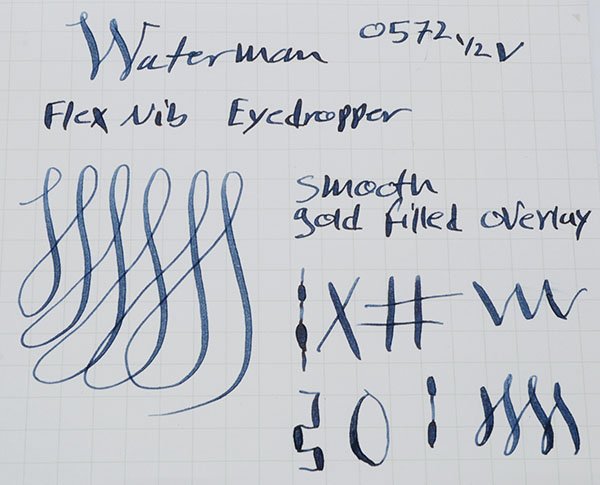 Waterman 0572 1/2 V
Flex Nib Eyedropper
smooth
gold filled overlay